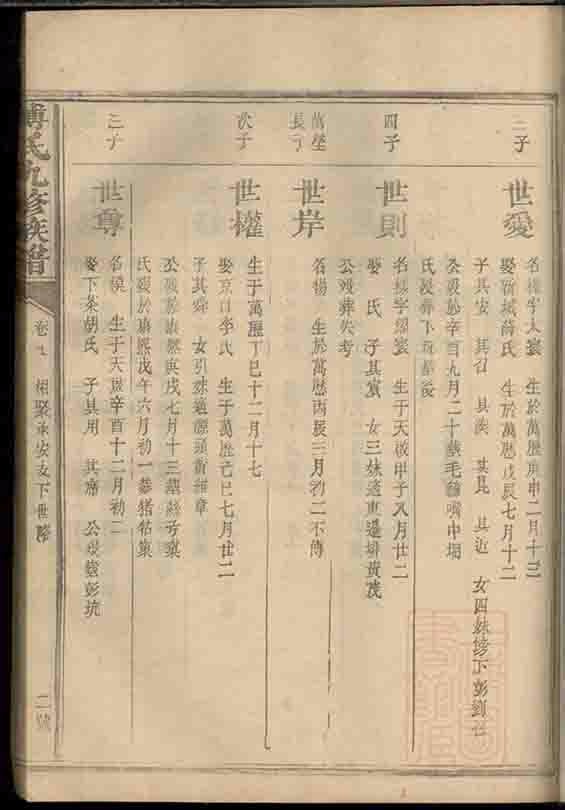 二子
世愛
生於萬歷庚申二月十三
娶新城薛氏 生於萬歷戊辰七月十二
子其安 其召 其 其昆 其近 女四妹適下彭劉
公殁於辛酉九月二十葬毛 嘴中塅
氏殁葬下
四子
世則
生于天啟甲子八月廿二
娶 氏 子其賓 女三妹適東邊排黃茂
公殁葬失考
萬 長子
世岸
名楊 生於萬歷丙辰三月初二不傳
次子
世權
生于萬歷丁巳十二月十七
娶京口李氏 生于萬歷己巳七月廿二
子其舜 女引妹適源頭黃
公殁於康熙庚戌七月十三葬
氏殁於康熙戊午六月初一葬猪牯窠
三子
世尊
名模 生于天啟辛酉十二月初二
娶下茶胡氏 子其用 其 公殁葬彭坑
傅氏九修族譜
卷 相聚承安支下世系
二號